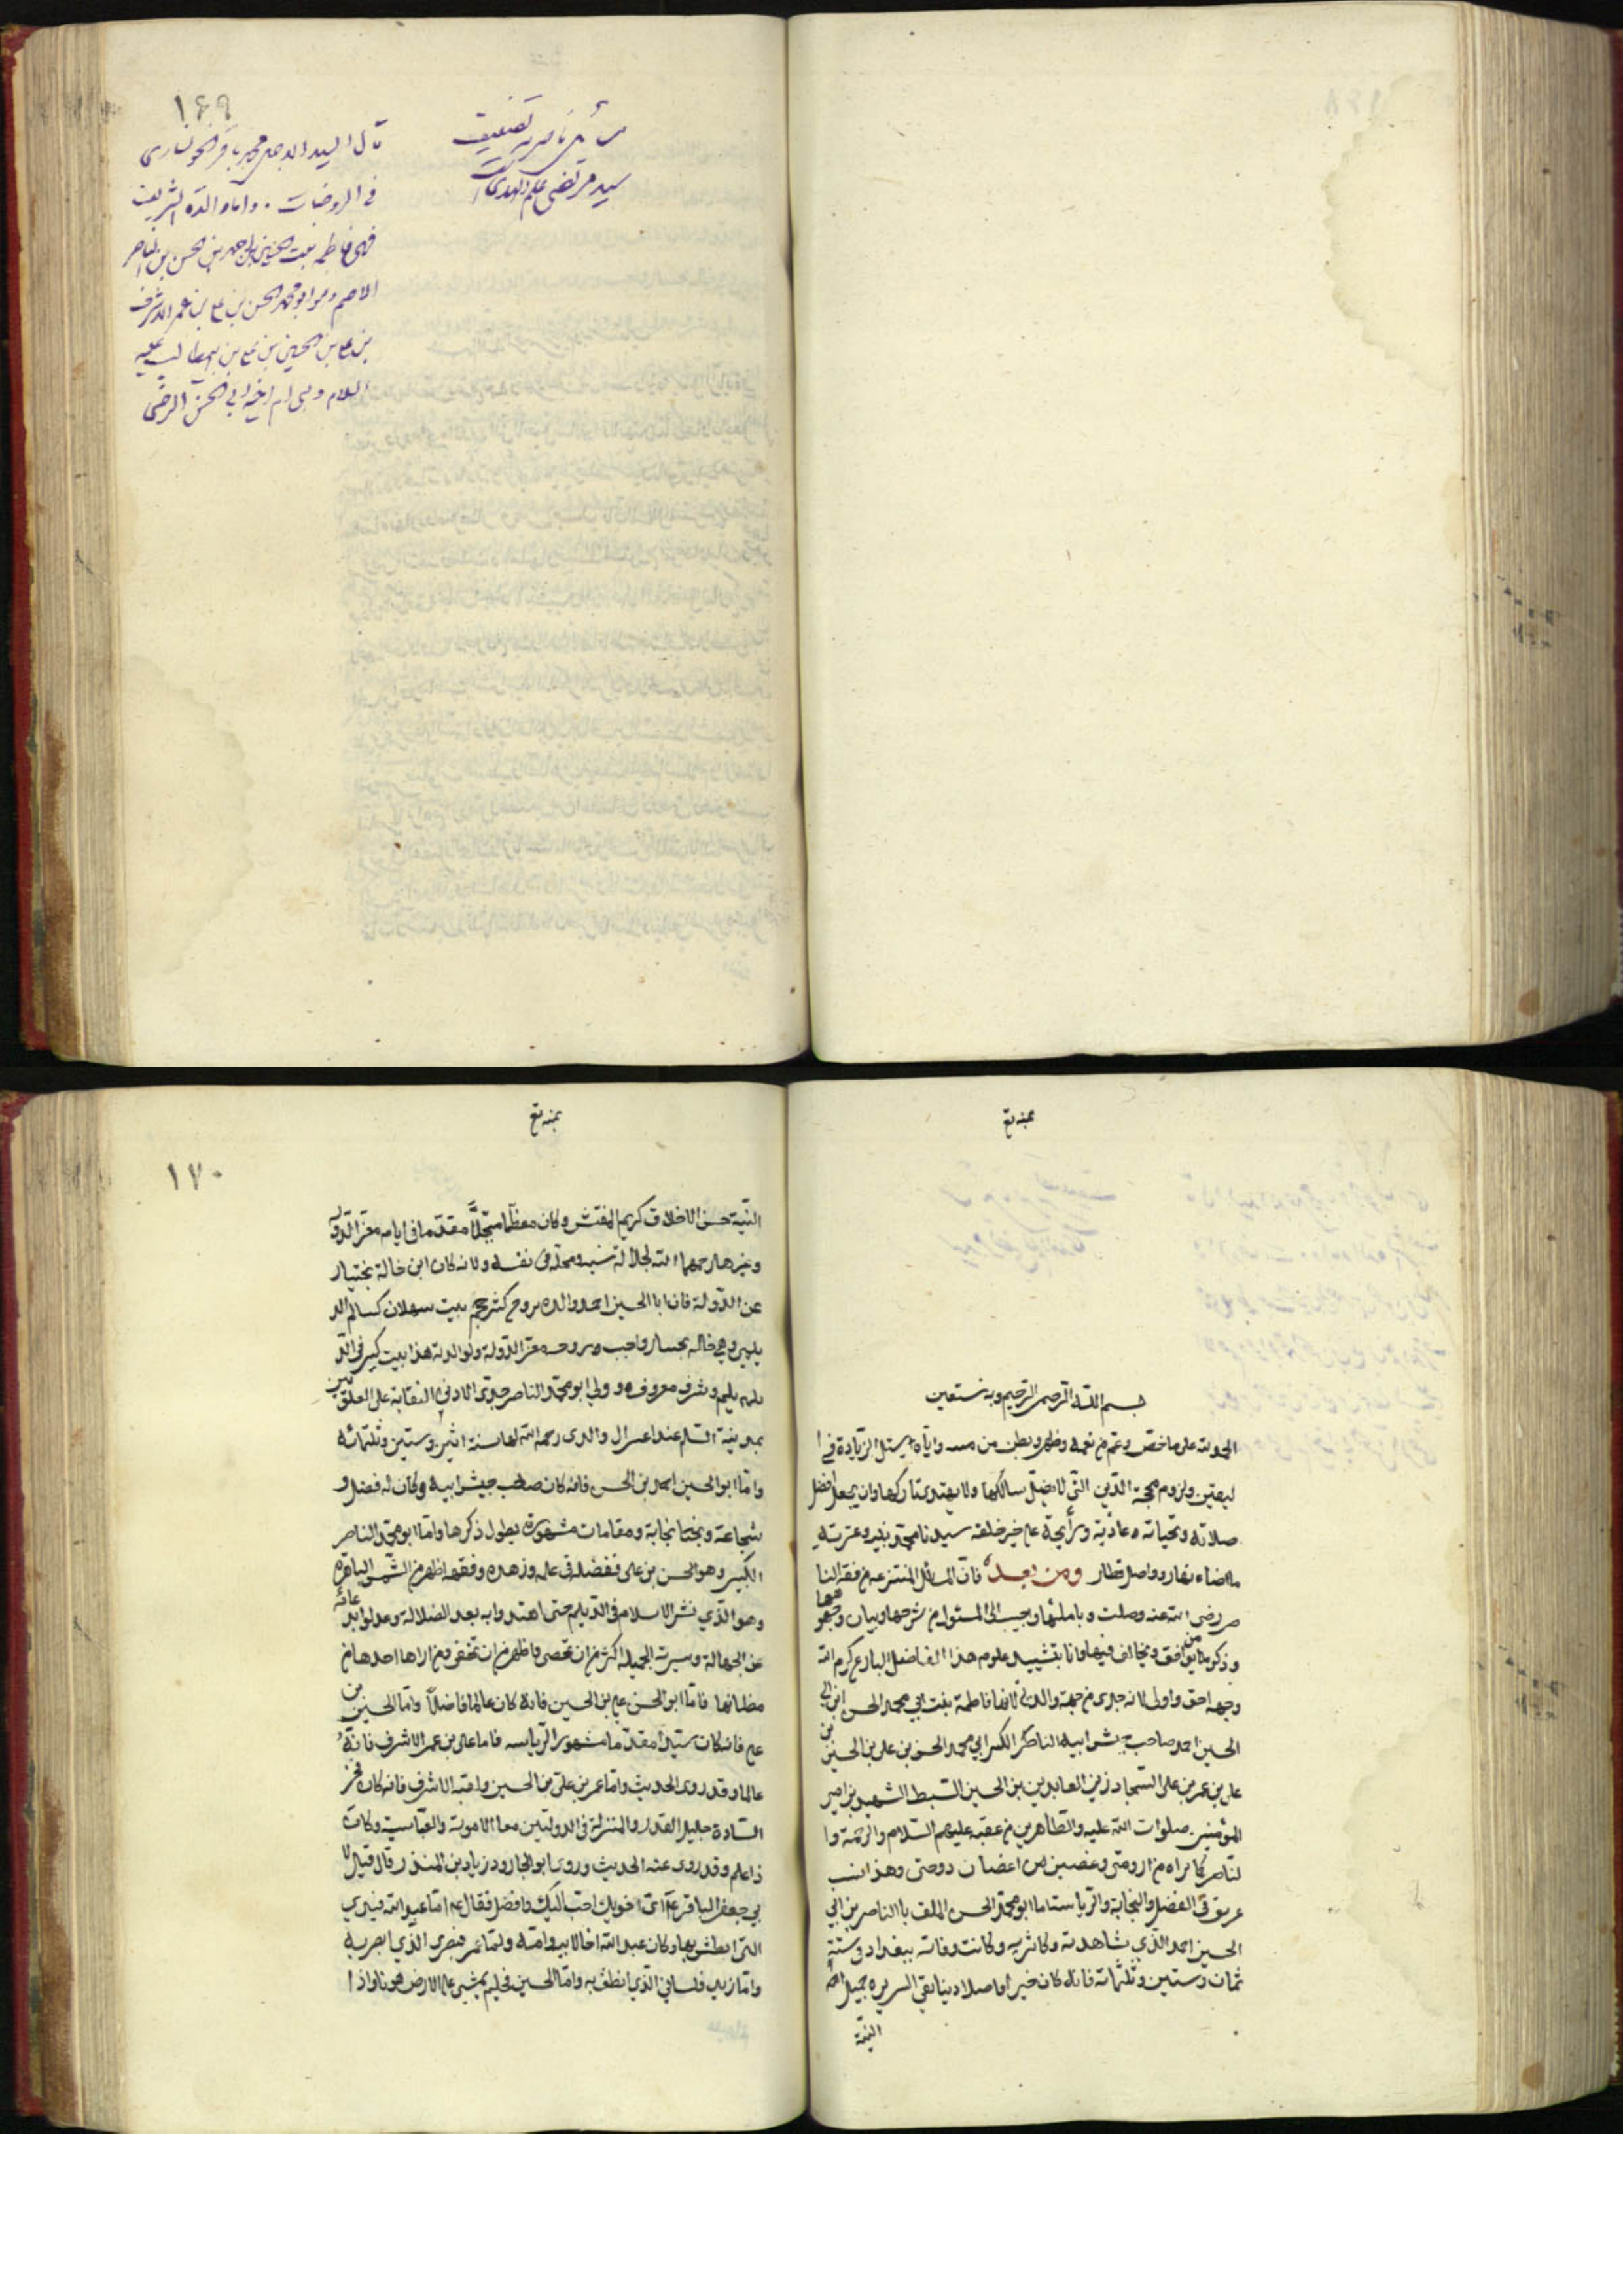 ۱۶۹
مسائل ناصریه تصنیف
سید مرتضی علم الهدی
قال السید الاجل محمد باقر الخونساری
فی الروضات . واما والدته الشریفه
فهی فاطمه بنت الحسین بن احمد بن الحسن بن الناصر
الاصم وهو ابو محمد الحسن بن علی بن عمر الاشرف
بن علی بن الحسین بن علی بن ابیطالب علیه
السلام وهی ام اخیه ابی الحسن الرضی
بمنه تع
بسم الله الرحمن الرحيم وبه نستعين
الحمد لله على ماخص وعم من نعمه وظهر وبطن من مننه واياه يستل الزيادة في ا
ليقين ولزوم محجة الدين التي لا يضل سالكها ولا يهتدى تاركها وان يجعل افضل
صلاته وتحياته غادية ورائحة على خير خلقه سيدنا محمد نبيه وعترته
ما اضاء نهار وواصل قطار ومن بعد فان المسائل المنتزعة من فقه النا
صر رضى الله عنه وصلت وتاملتها واجيب الى المسئول من شرحها وبيان وجوهها
وذكر من يوافق ويخالف فيها وانا بتشييد علوم هذا الفاضل البارع كرم الله
وجهه احق واولى لانه جدى من جهة والدتى لانها فاطمة بنت ابي محمد الحسن ابن ابى
الحسين احمد صاحب جيش ابيه الناصر الكبير ابي محمد الحسن بن على بن الحسين بن
على بن عمر بن على السجاد زين العابدين بن الحسين السبط الشهيد بن امير
المؤمنين صلوات الله عليه والطاهرين من عقبه عليهم السلام والرحمة وا
لناصر كما تراه من ارومتى وغصن من اغصان دوحتى وهذا نسب
عريق فى الفضل والنجابة والرياسة اما ابو محمد الحسن الملقب بالناصر بن ابي
الحسين احمد الذي شاهدته وكاثرته وكانت وفاته ببغداد فى سنة
ثمان وستين وثلثمائة فانه كان خيرا فاضلا دينا نقى السريرة جميل
النية
بمنه تع
۱۷۰
النية حسن الاخلاق كريم المفتش وكان معظما مبجلا مقدما فى ايام معز الدولة
وغيرها رحمهما الله لجلالة نسبه ومحله فى نفسه ولانه كان ابن خالة بختيار
عز الدولة فان ابا الحسين احمد والده تزوج كثرحجير بنت سهلان كسالم الد
يلمى وهي خالة بختيار واخت زوجة معز الدولة ولوالدته هذا بيت كبير فى الد
يلم وشرف معروف وولى ابو محمد الناصر جدى الادنى النقابة على العلويين
بمدينة السلم عند اعتزال والدى رحمه الله لها سنة اثنين وستين وثلثمائة
واما ابو الحسين احمد بن الحسن فانه كان صاحب جيش ابيه وكان له فضل و
شجاعة ونجابة ومقامات مشهورة يطول ذكرها واما ابو محمد الناصر
الكبير وهو الحسن بن على ففضله فى علمه وزهده وفقهه اظهر من الشمس الباهرة
وهو الذي نشر الاسلام فى الديلم حتى اهتدوا به بعد الضلالة وعدلوا بدعائه
عن الجهالة وسيرته الجميلة اكثر من ان تحصى واظهر من ان تخفى ومن ارادها اخذها من
مظانها فاما ابو الحسن على بن الحسين فانه كان عالما فاضلا واما الحسين بن
على فانه كان سيدا مقدما مشهور الرياسة فاما على بن عمر الاشرف فانه
عالما وقد روى الحديث واما عمر بن على بن الحسين ولقبه الاشرف فانه كان فخر
السادة جليل القدر والمنزلة فى الدولتين معا الاموية والعباسية وكان
ذا علم وقد روى عنه الحديث وروى ابو الجارود زياد بن المنذر قال قيل لا
بي جعفر الباقر ع اى اخوتك احب اليك وافضل فقال ع اما عبد الله فيدي
التى ابطش بها وكان عبد الله اخاه لابيه وامه واما عمر فبصرى الذي ابصر به
واما زيد فلساني الذي انطق به واما الحسين فحليم يمشي على الارض هونا واذا